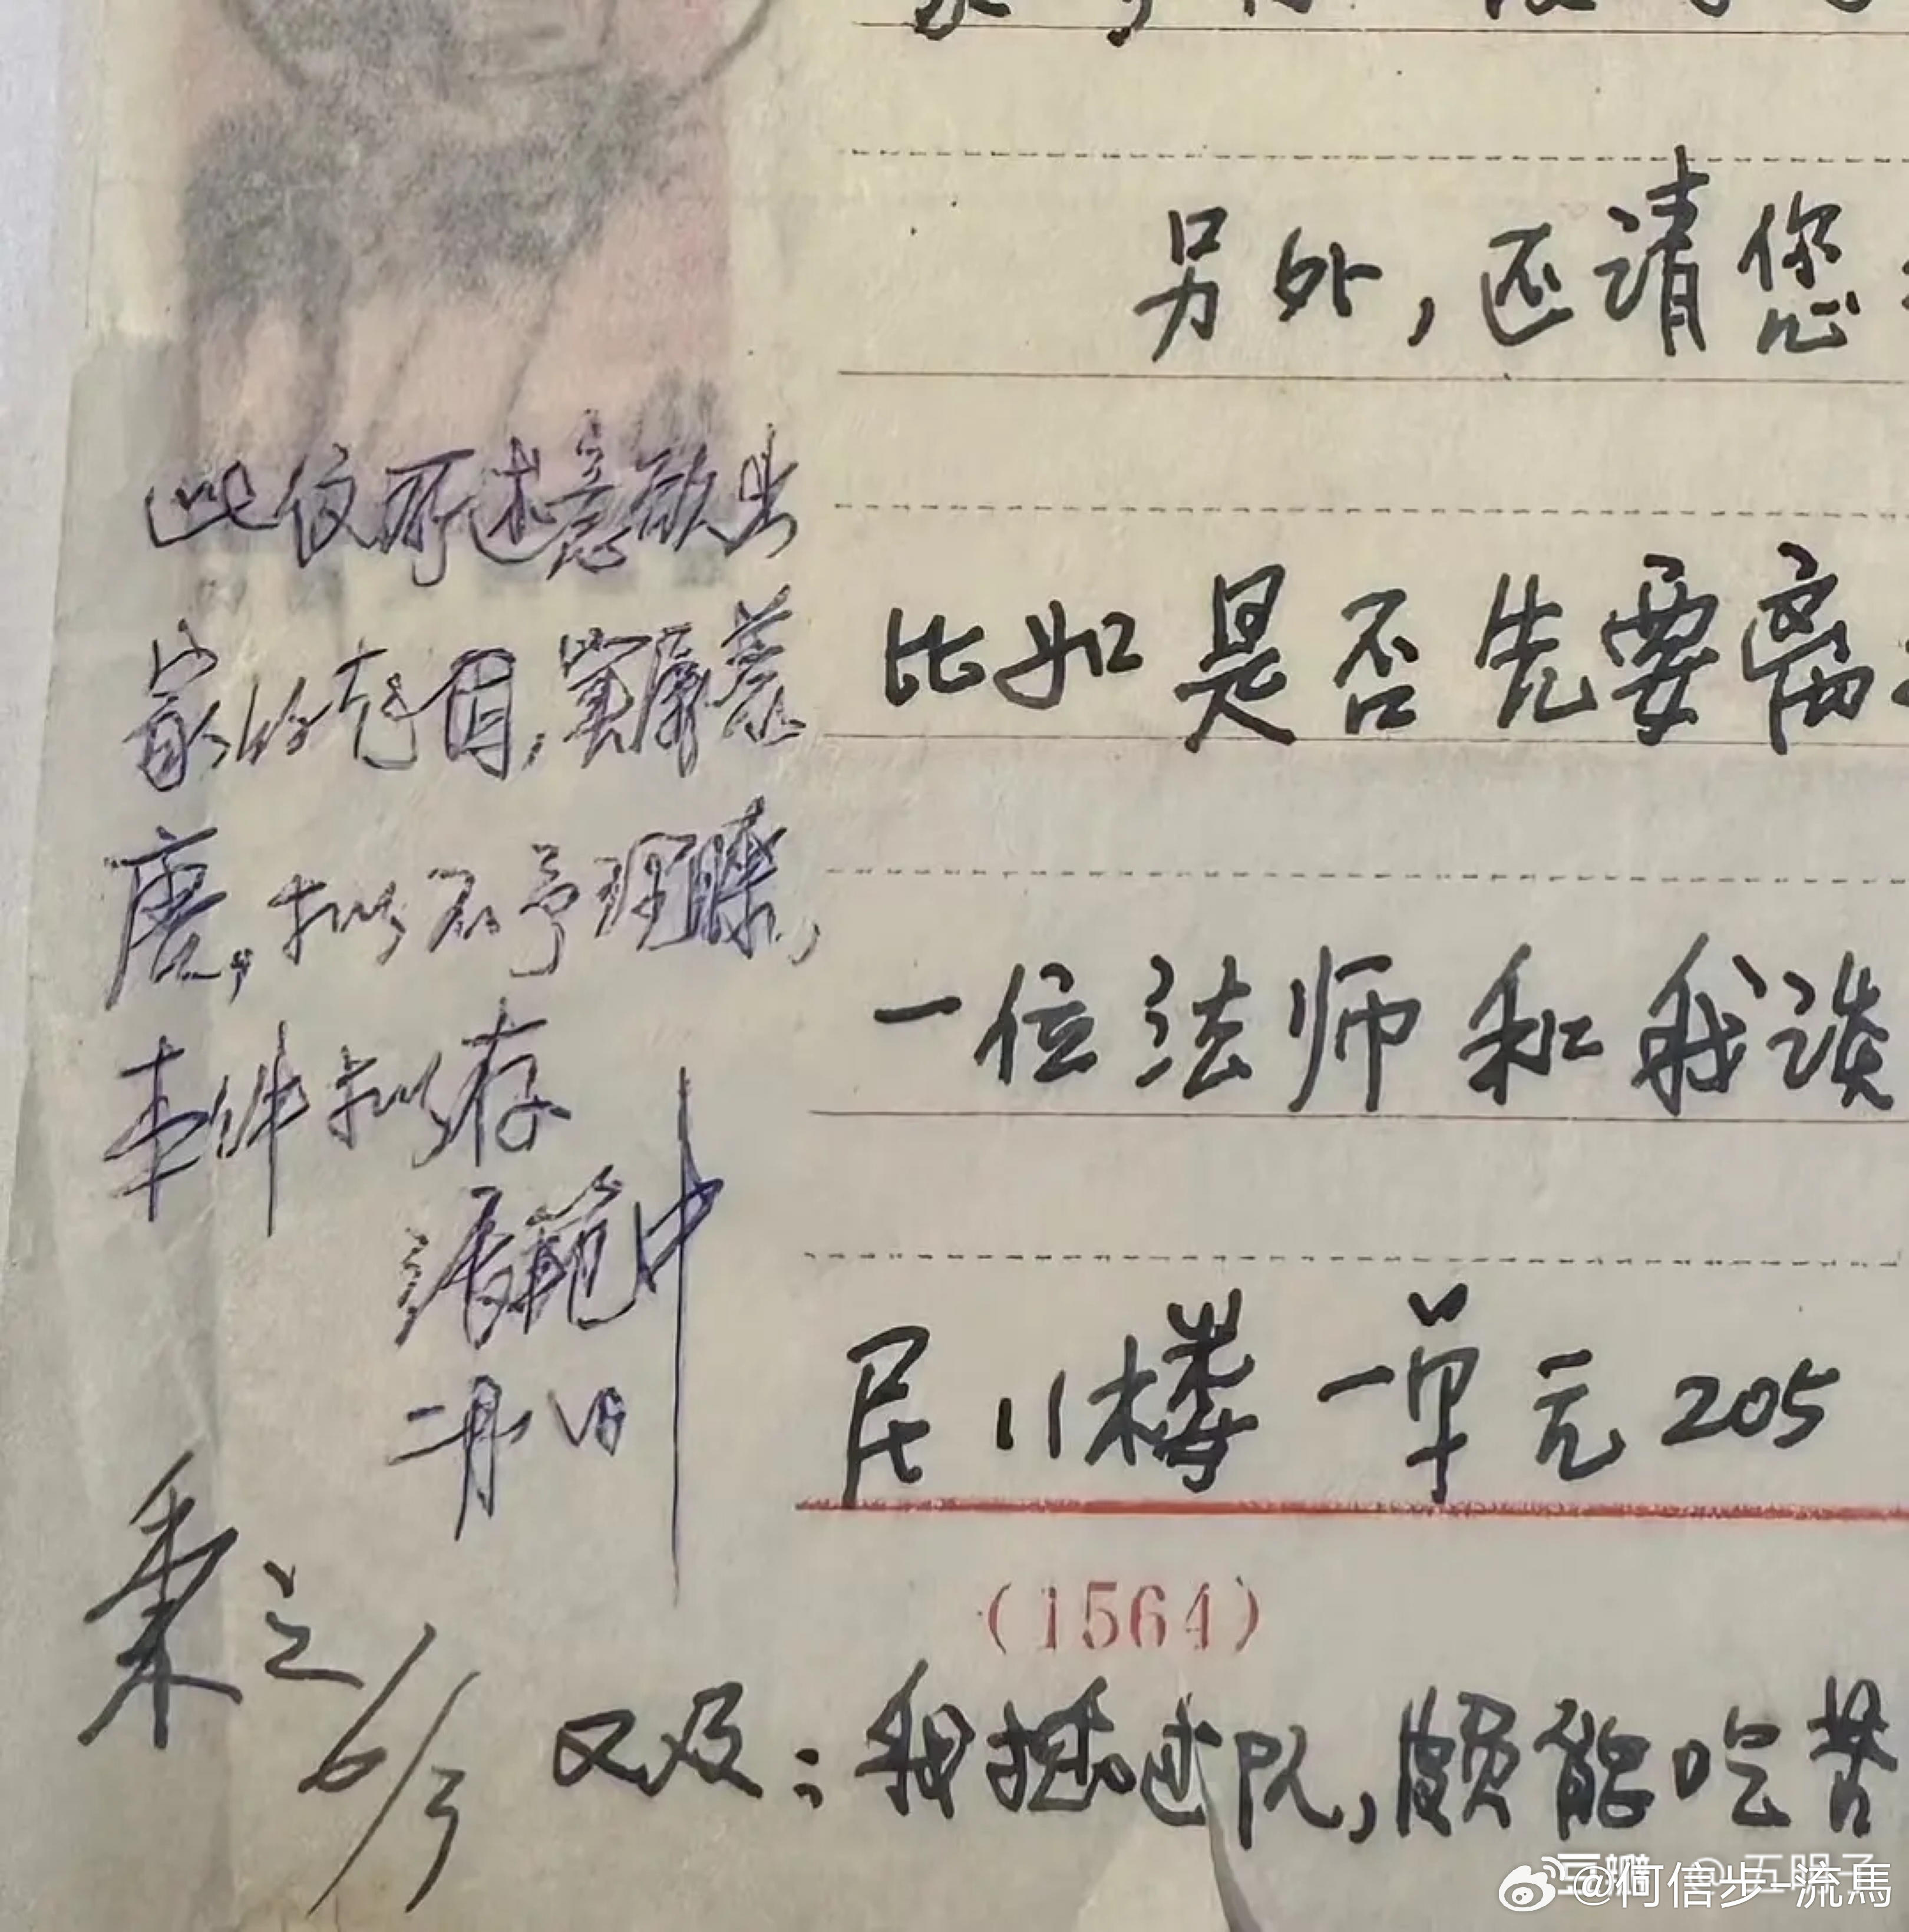 另外，还请您
比如是否先要离
一位法师和我谈
民11楼一单元205
(1564)
又及：我插过队，颇能吃苦
此仅所述意欲出
家的起因，实属荒
唐，拟不予理睬，
本件拟存
张范中
二月八日
秉之
6/3
豆瓣 @五明子
@何信步-流馬